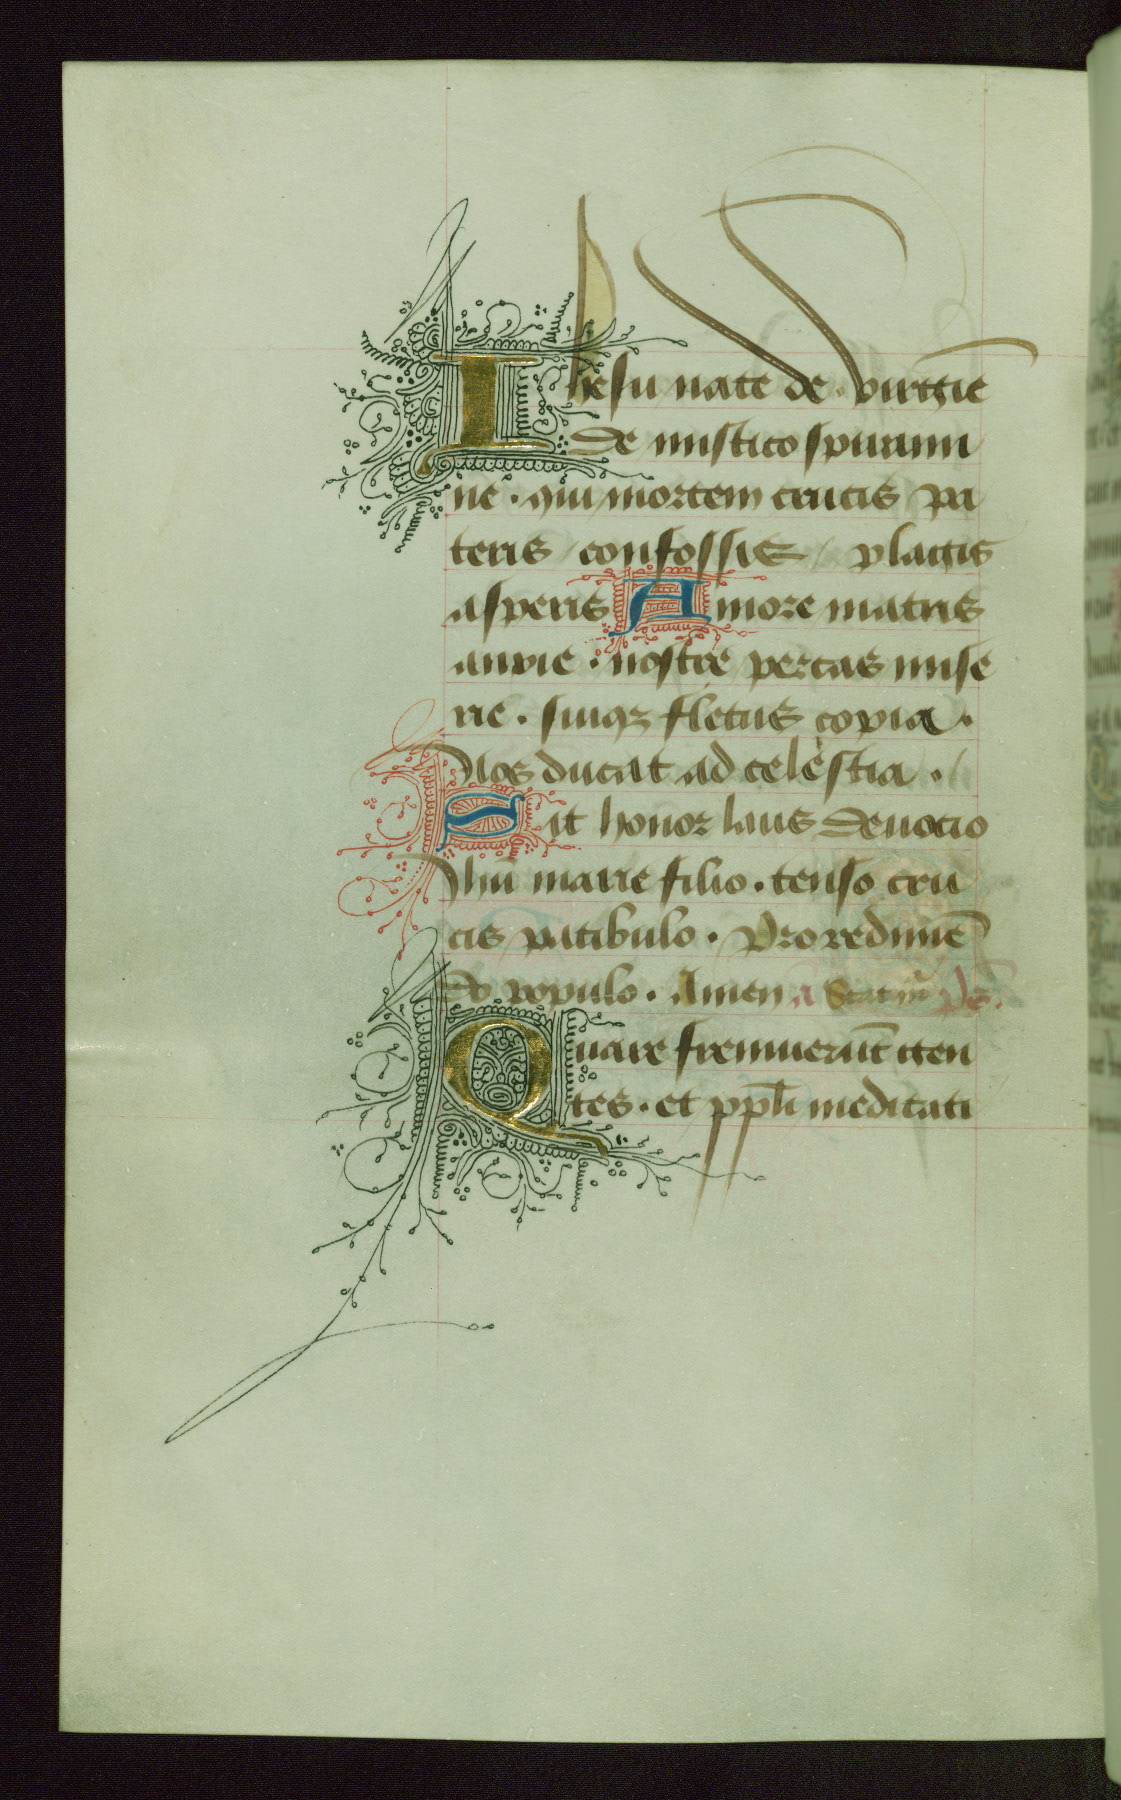 Ihesu nate de virgīe
de mistico spirami
ne · qui mortem crucis pa
teris confossis plagis
asperis Amore matris
anxie · nostre parcas mise
rie · suiqz fletus copia ·
Nos ducat ad celestia ·
Sit honor laus deuocio
Ihū marie filio · tenso cru
cis patibulo · Pro redimē
do populo · Amen a Ps.
Quare fremuerūt gen
tes · et ppli meditati